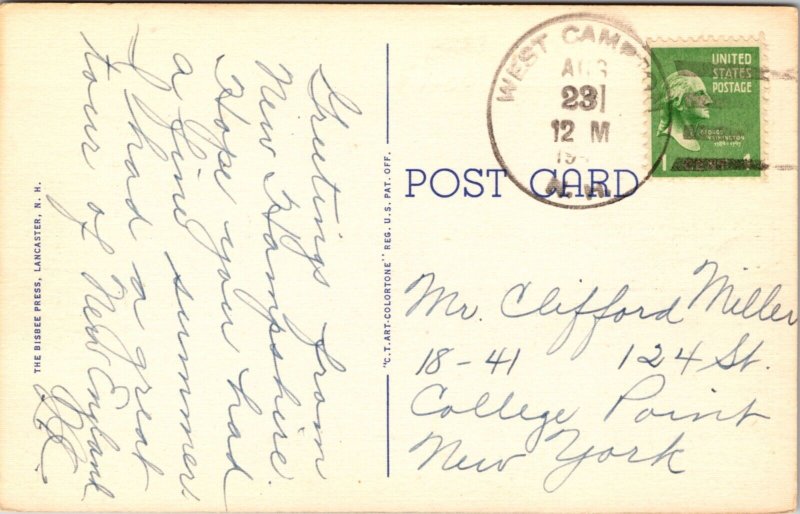 Greetings from
New Hampshire.
Hope you had
a fine summer.
I had a great
tour of New England
THE BISBEE PRESS, LANCASTER, N. H.
"C.T.ART-COLORTONE" REG. U.S. PAT. OFF.
POST CARD
WEST CAMPTON
AUG
23
12 M
19
N.H.
UNITED
STATES
POSTAGE
GEORGE
WASHINGTON
1789-1797
1 1
Mr. Clifford Miller
18-41 124 St.
College Point
New York